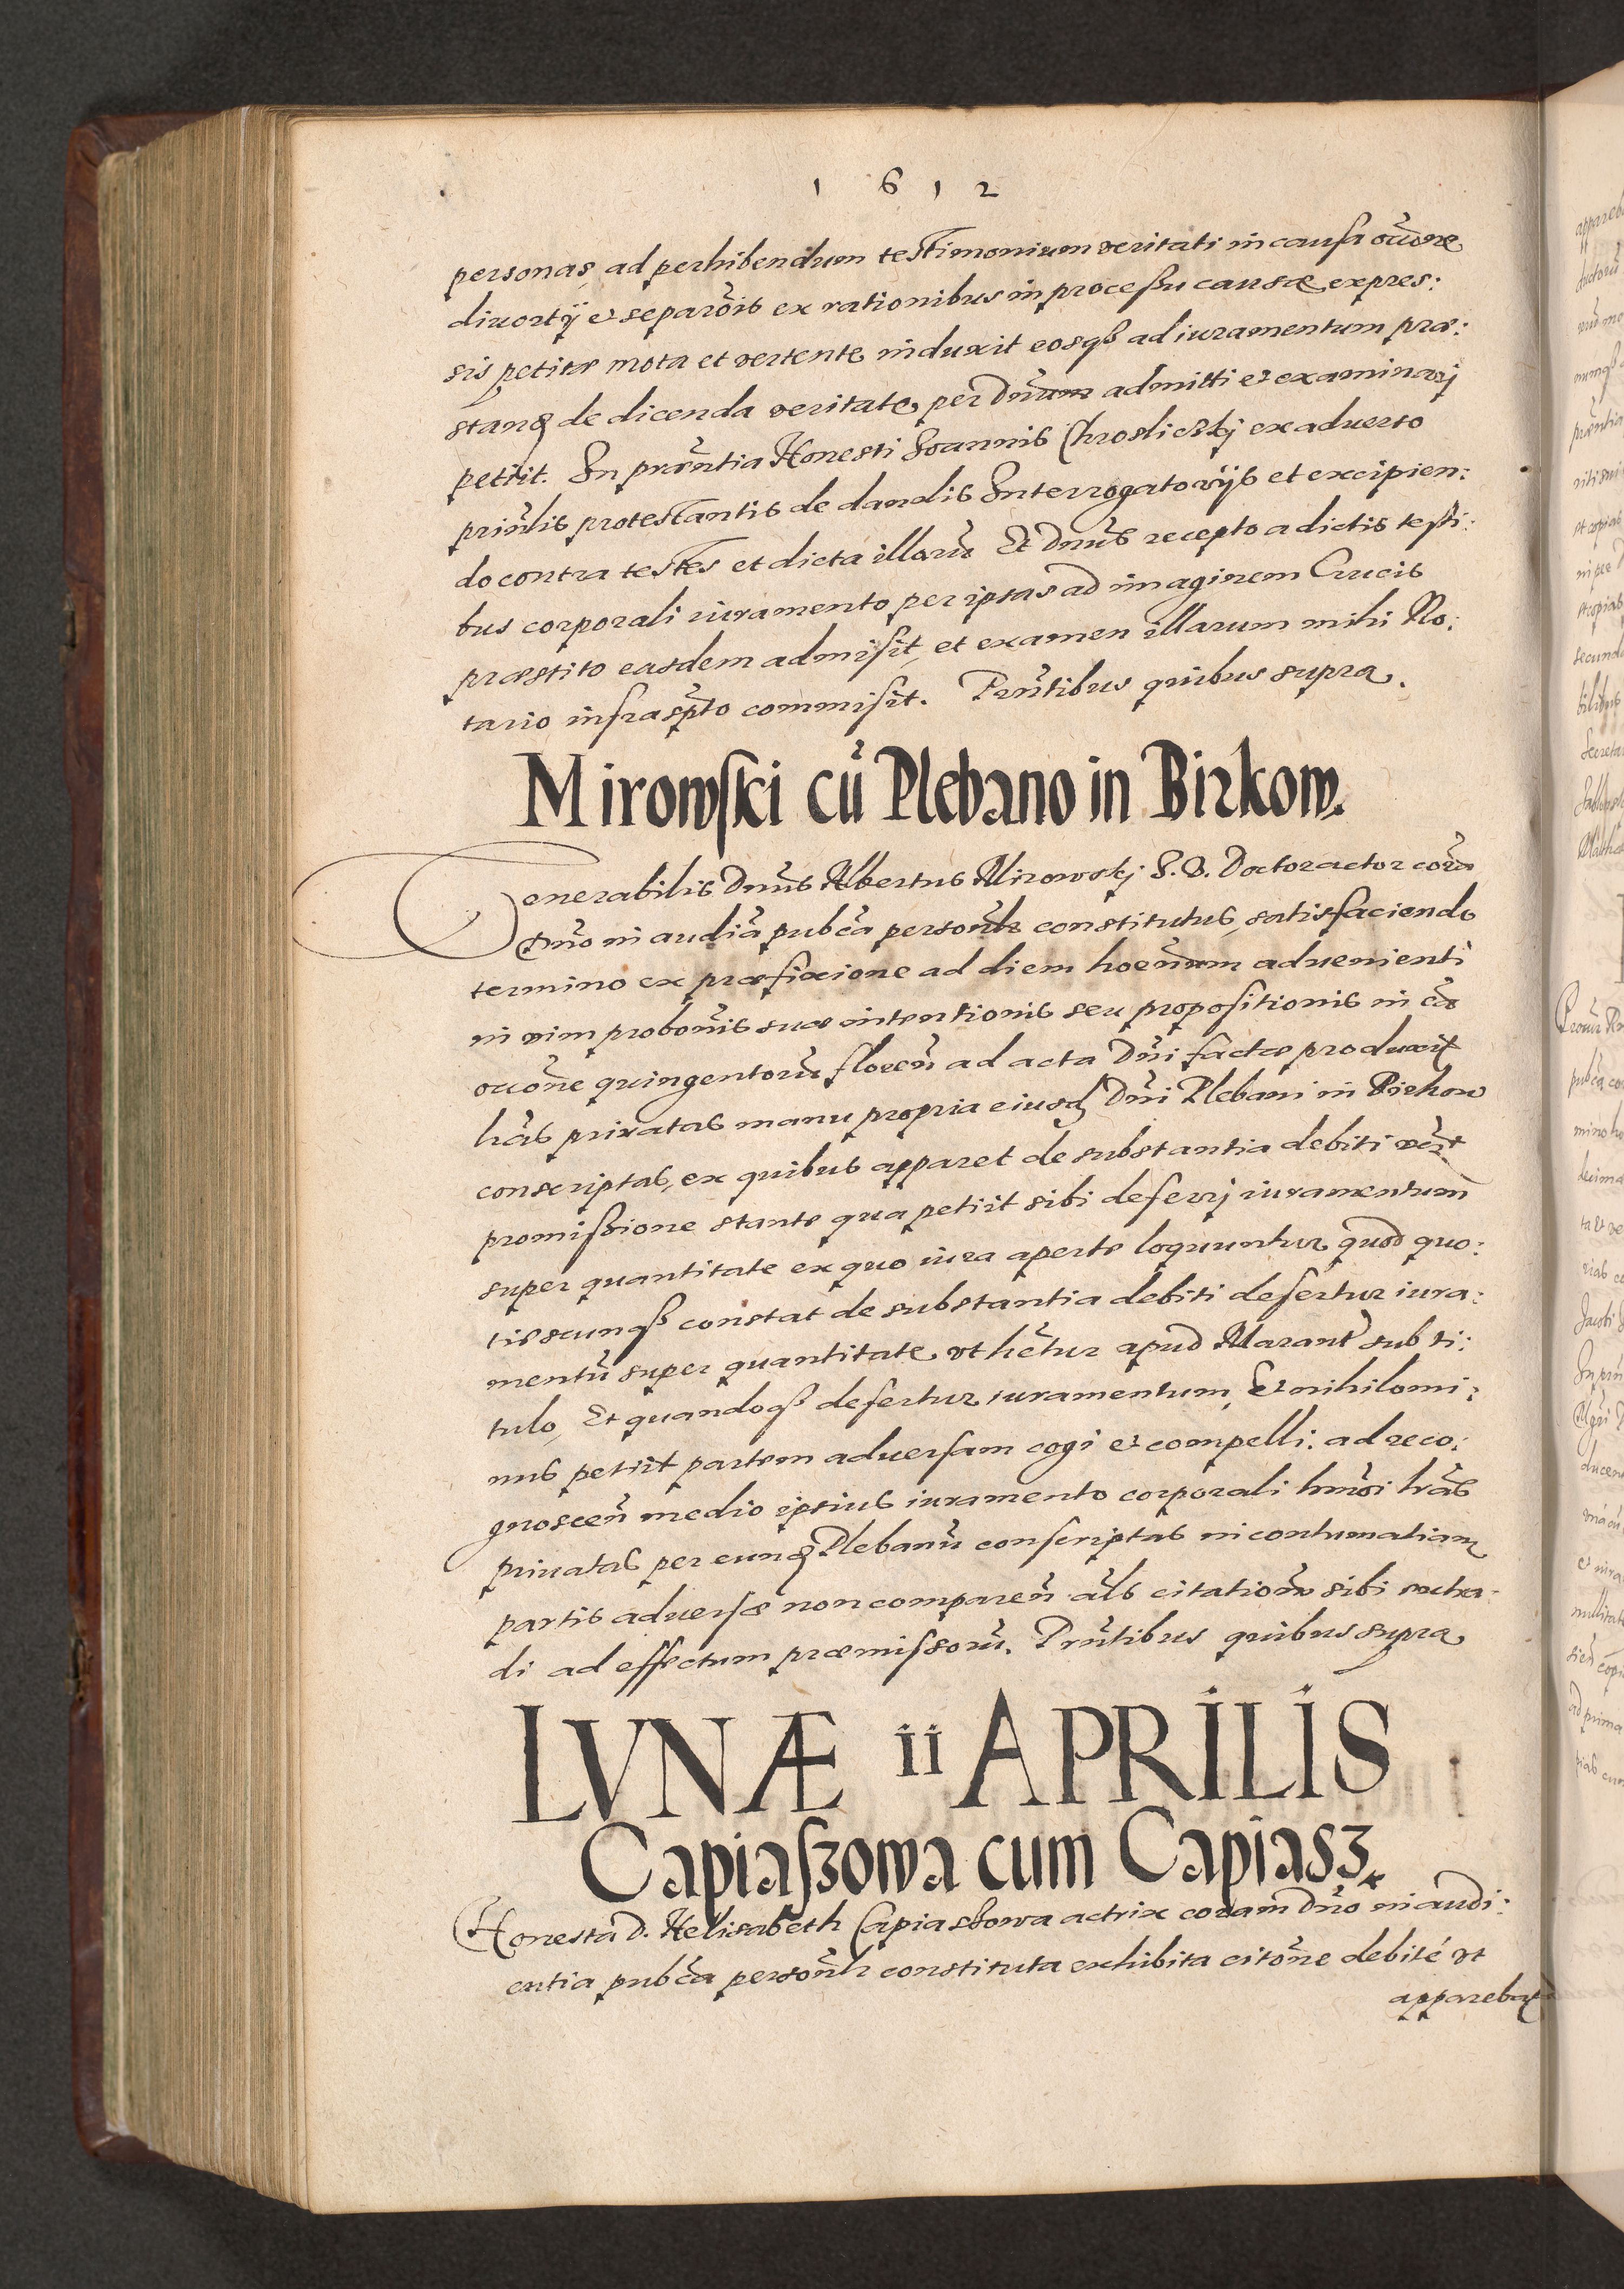 1612
personas ad perhibendum testimonium veritati in causa occõne
divortÿ et separõis ex rationibus in processu causæ expres:
sis petitæ mota et vertente induxit eosq3 ad iuramentum præ:
stanđ de dicenda veritate per Dnum admitti et examinarj
petiit. In præntia Honesti Joannis Chroslieskj ex adverso
prinlis protestantis de dandis Interrogatorÿs et excipien:
do contra testes et dicta illorũ Et Dnus recepto a dictis testi:
bus corporali iuramento per ipsas ad imaginem Crucis
præstito easdem admisit, et examen illarum mihi No:
tario infraspto commisit. Prntibus quibus supra.
Mirowski cũ Plebano in Birkow.
Venerabilis Dnus Albertus Mirowskj S. D. Doctor actor corã
Dno in audiã pubca personlr constitutus, satisfaciendo
termino ex præfixione ad diem hoernum advenienti
in vim probõnis suæ intentionis seu propositionis in cã
occõne quingentorũ florẽn ad acta Dni factæ produxit
lrãs privatas manu propria eiusđ Dni Plebani in Birkow
conscriptas, ex quibus apparet de substantia debiti
promissione stante qua petiit sibi deferrj iuramentum
super quantitate ex quo iura aperte loquuntur quod quo:
tiescunq3 constat de substantia debiti defertur iura:
mentũ super quantitate, vt hẽtur apud Marant sub ti:
tulo, Et quandoq3 defertur iuramentum, Et nihilomi:
nus petiit partem adversam cogi et compelli. ad reco:
gnoscen̄ medio ipsius iuramento corporali hmõi lrãs
privatas per eunđ Plebanũ conscriptas in contumatiam
partis adversæ non comparen̄ als citationẽ sibi
di ad effectum præmissorũ. Prntibus quibus supra
LVNÆ ii APRILIS
Capiaszowa cum Capiasz.
Honesta D. Helisabeth Capiaszowa actrix coram Dno in audi:
entia pubca personlr constituta exhibita citõne debitè vt
apparebat